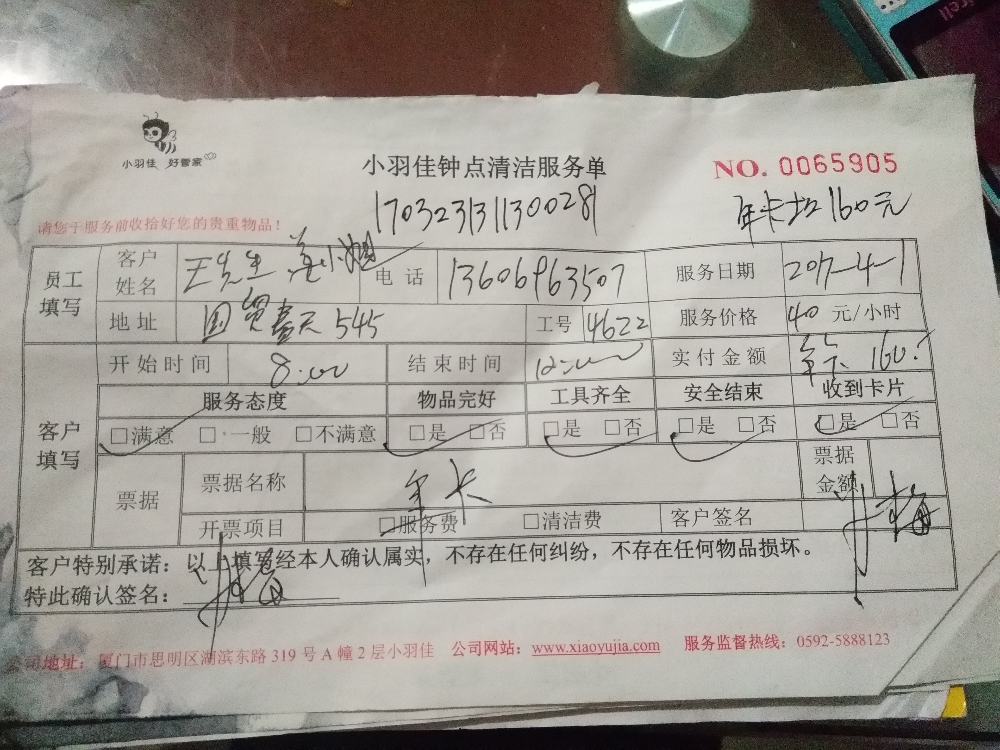 小羽佳 好管家
小羽佳钟点清洁服务单
NO. 0065905
1703231311300281
年卡扣160元
请您于服务前收拾好您的贵重物品！
员工填写 客户姓名 王先生 姜小姐 电话 13606963507 服务日期 2017-4-1
地址 国贸春天545 工号 4622 服务价格 40 元/小时
客户填写 开始时间 8:00 结束时间 12:00 实付金额 年卡 160.
服务态度 物品完好 工具齐全 安全结束 收到卡片
□满意 □一般 □不满意 □是 □否 □是 □否 □是 □否 □是 □否
票据 票据名称 年卡 票据金额
开票项目 □服务费 □清洁费 客户签名
客户特别承诺：以上填写经本人确认属实，不存在任何纠纷，不存在任何物品损坏。
特此确认签名：
公司地址：厦门市思明区湖滨东路 319 号 A 幢 2 层小羽佳 公司网站：www.xiaoyujia.com 服务监督热线：0592-5888123